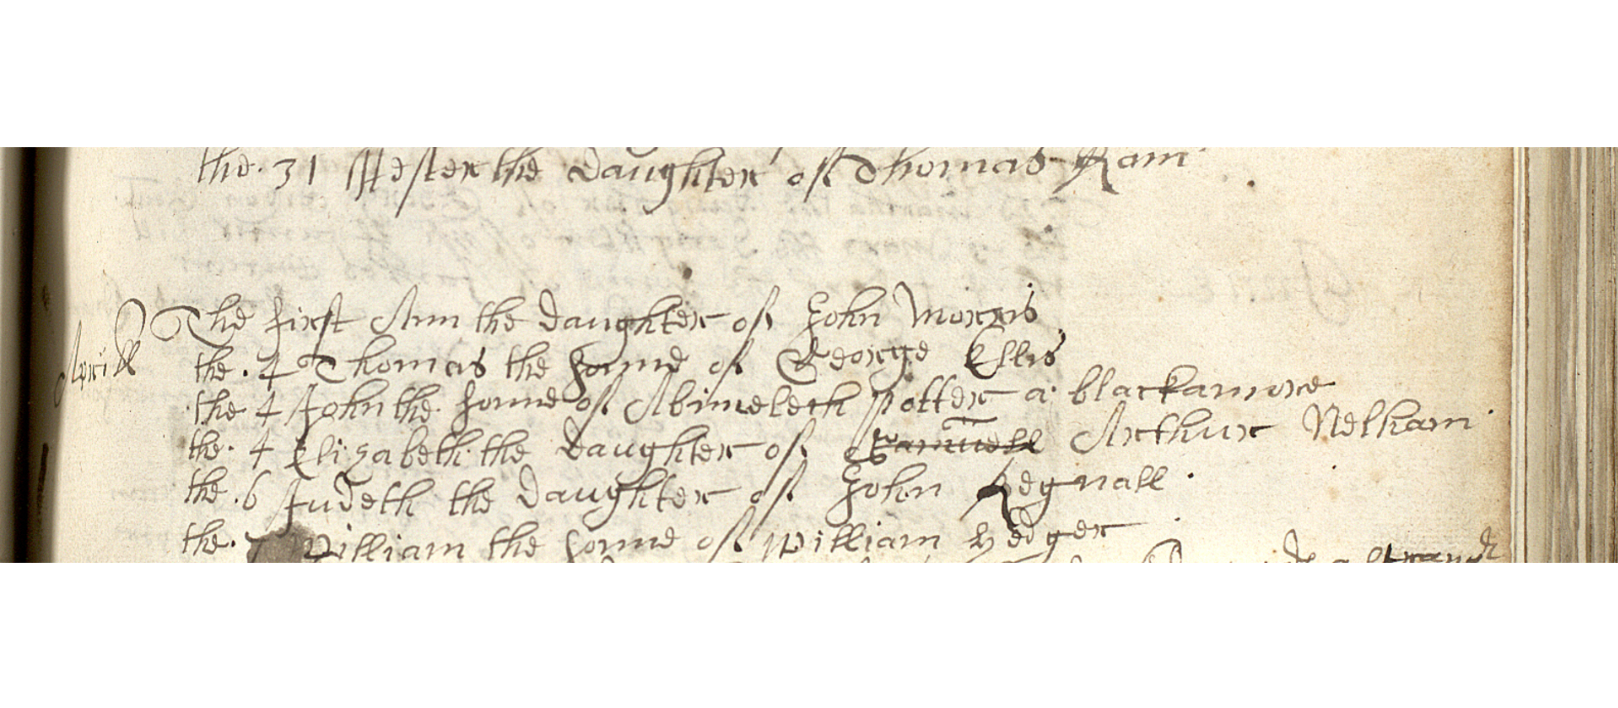 the. 31 Hester the daughter of Thomas Ram
Aprill The first Ann the daughter of John Morris
the. 4 Thomas the sonne of George Ellis
the 4 John the sonne of Abimelech Potter a blackamore
the. 4 Elizabeth the daughter of Samuell Arthur Nelham
the. 6 Judeth the daughter of John Regnall
the. 7 William the sonne of William Hedger